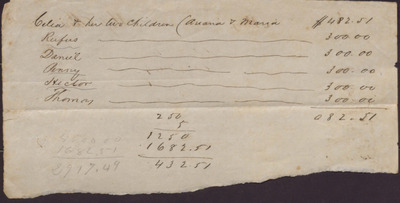 Celia & her two Children (Anana & Marza $482.51
Rufus 300.00
Daniel 300.00
Nancy 300-00
Hector 300-00
Thomas 300-00
082.51
250
5
1250
1682.51
432.51